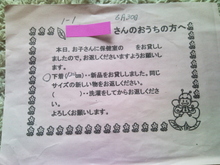 1-1
さんのおうちの方へ
本日、お子さんに保健室の　　をお貸ししましたので、お返しくださいますようお願いします。
○下着(　)‥新品をお貸しました。同じサイズの新しい物をお返しください。
(　　)‥洗濯をしてからお返しください。
よろしくお願いします。